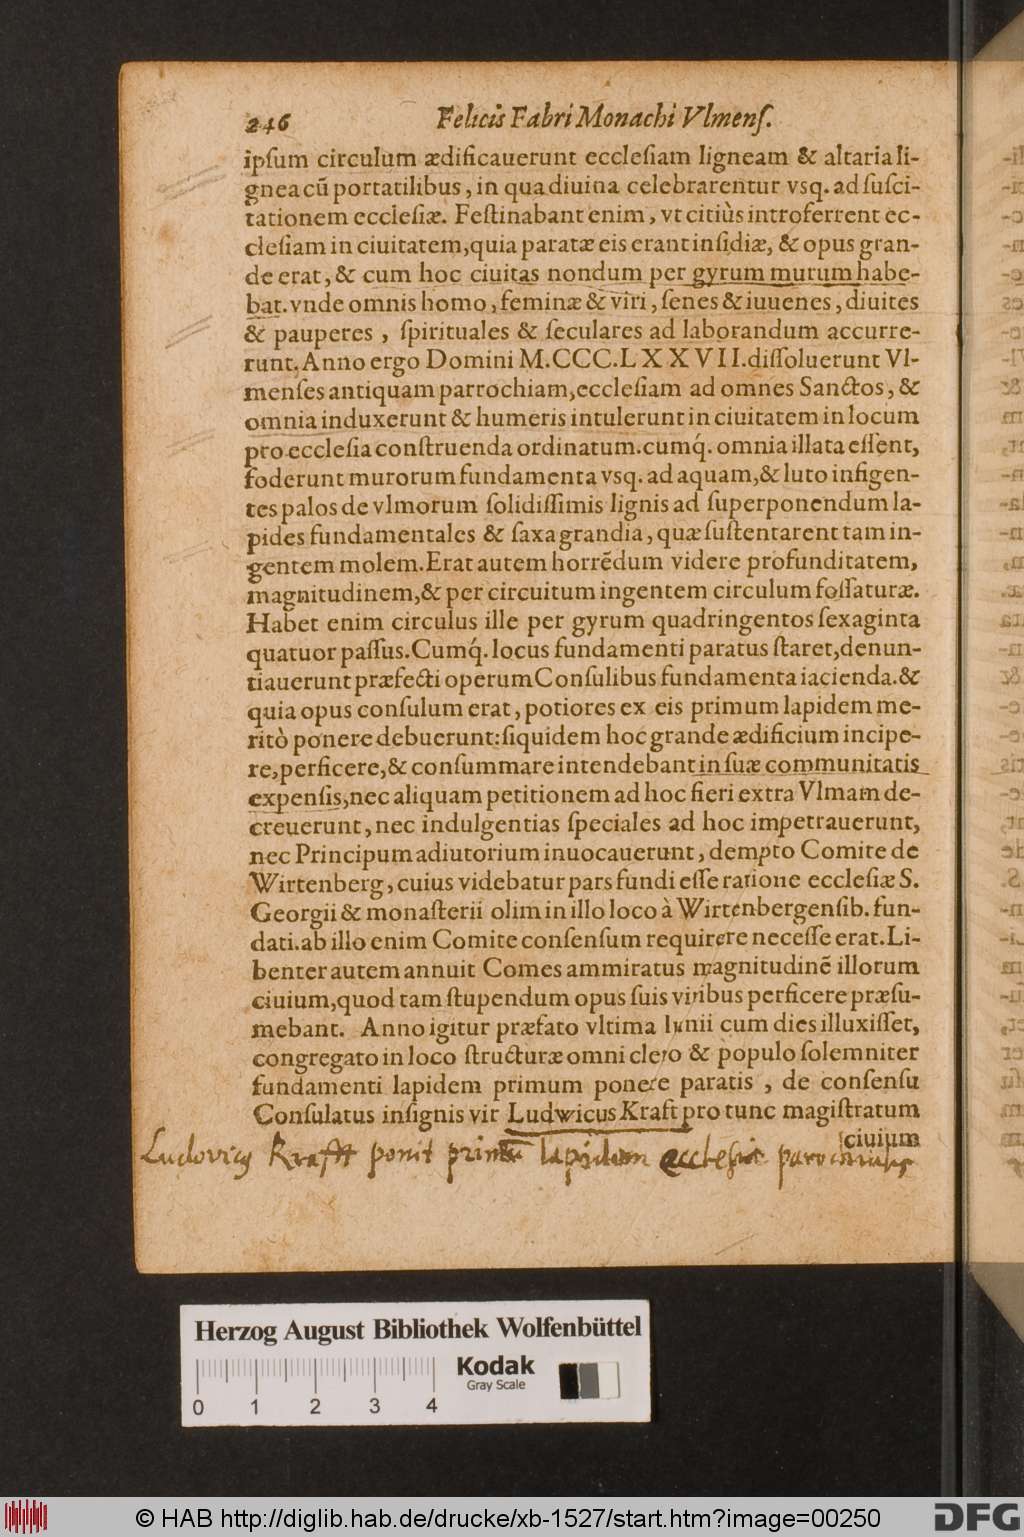 246 Felicis Fabri Monachi Vlmenſ.
ipſum circulum ædificauerunt eccleſiam ligneam & altaria li-
gnea cũ portatilibus, in qua diuina celebrarentur vsq. ad ſuſci-
tationem eccleſiæ. Feſtinabant enim, vt citiùs introferrent ec-
cleſiam in ciuitatem, quia paratæ eis erant inſidiæ, & opus gran-
de erat, & cum hoc ciuitas nondum per gyrum murum habe-
bat. vnde omnis homo, feminæ & viri, ſenes & iuuenes, diuites
& pauperes, ſpirituales & ſeculares ad laborandum accurre-
runt. Anno ergo Domini M.CCC.LXXVII. diſſoluerunt Vl-
menſes antiquam parrochiam, eccleſiam ad omnes Sanctos, &
omnia induxerunt & humeris intulerunt in ciuitatem in locum
pro eccleſia conſtruenda ordinatum. cumq́. omnia illata eſſent,
foderunt murorum fundamenta vsq. ad aquam, & luto infigen-
tes palos de vlmorum ſolidiſſimis lignis ad ſuperponendum la-
pides fundamentales & ſaxa grandia, quæ ſuſtentarent tam in-
gentem molem. Erat autem horrẽdum videre profunditatem,
magnitudinem, & per circuitum ingentem circulum foſſaturæ.
Habet enim circulus ille per gyrum quadringentos ſexaginta
quatuor paſſus. Cumq́. locus fundamenti paratus ſtaret, denun-
tiauerunt præfecti operum Conſulibus fundamenta iacienda. &
quia opus conſulum erat, potiores ex eis primum lapidem me-
ritò ponere debuerunt: ſiquidem hoc grande ædificium incipe-
re, perficere, & conſummare intendebant in ſuæ communitatis
expenſis, nec aliquam petitionem ad hoc fieri extra Vlmam de-
creuerunt, nec indulgentias ſpeciales ad hoc impetrauerunt,
nec Principum adiutorium inuocauerunt, dempto Comite de
Wirtenberg, cuius videbatur pars fundi eſſe ratione eccleſiæ S.
Georgii & monaſterii olim in illo loco à Wirtenbergenſib. fun-
dati. ab illo enim Comite conſenſum requirere neceſſe erat. Li-
benter autem annuit Comes ammiratus magnitudinẽ illorum
ciuium, quod tam ſtupendum opus ſuis viribus perficere præſu-
mebant. Anno igitur præfato vltima Iunii cum dies illuxiſſet,
congregato in loco ſtructuræ omni clero & populo ſolemniter
fundamenti lapidem primum ponere paratis, de conſenſu
Conſulatus inſignis vir Ludwicus Kraft pro tunc magiſtratum
ciuium
Ludovicus Krafft ponit primũ lapidem ecclesiæ parochialis
Herzog August Bibliothek Wolfenbüttel
Kodak
Gray Scale
0 1 2 3 4
© HAB http://diglib.hab.de/drucke/xb-1527/start.htm?image=00250
DFG